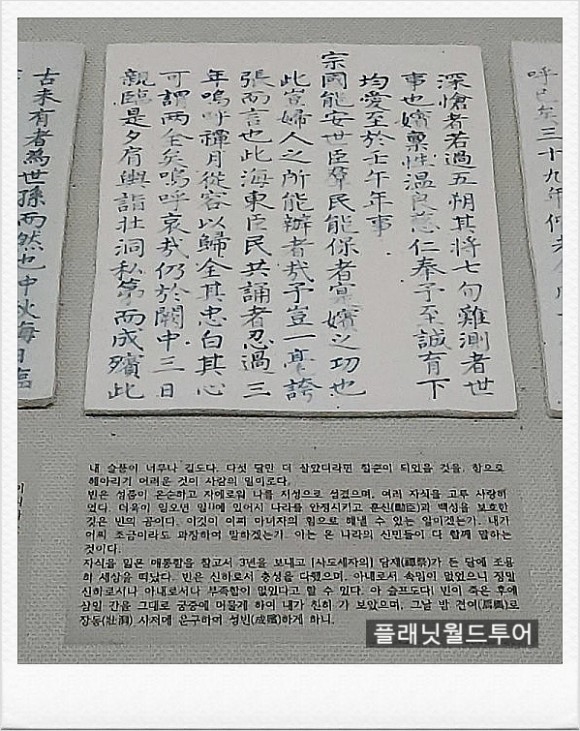 呼已矣三十九年何
深愴者若過五朔其將七旬難測者世
事也嬪稟性溫良慈仁奉予至誠育下
均愛至於壬午年事
宗國能安世臣羣民能保者寔嬪之功也
此豈婦人之所能辦者哉予豈一毫誇
張而言也此海東臣民共誦者忍過三
年嗚呼禫月從容以歸全其忠白其心
可謂两全矣嗚呼哀哉仍於闕中三日
親臨是夕肩輿詣壯洞私第而成殯此
古未有者爲世孫而然也中 海日臨
내 슬픔이 너무나 깊도다. 다섯 달만 더 살았더라면 칠순이 되었을 것을, 참으로
헤아리기 어려운 것이 사람의 일이로다.
빈은 성품이 온순하고 자애로워 나를 지성으로 섬겼으며, 여러 자식을 고루 사랑하
였다. 더욱이 임오년 일에 있어서 나라를 안정시키고 훈신(勳臣)과 백성을 보호한
것은 빈의 공이다. 이것이 어찌 아녀자의 힘으로 해낼 수 있는 일이겠는가. 내가
어찌 조금이라도 과장하여 말하겠는가. 이는 온 나라의 신민들이 다 함께 말하는
것이다.
자식을 잃은 애통함을 참고서 3년을 보내고 [사도세자의] 담제(禫祭)가 든 달에 조용
히 세상을 떠났다. 빈은 신하로서 충성을 다했으며, 아내로서 속임이 없었으니 정말
신하로서나 아내로서나 부족함이 없었다고 할 수 있다. 아 슬프도다! 빈이 죽은 후에
삼일 간을 그대로 궁중에 머물게 하여 내가 친히 가 보았으며, 그날 밤 견여(肩輿)로
장동(壯洞) 사저에 운구하여 성빈(成殯)하게 하니,
플래닛월드투어